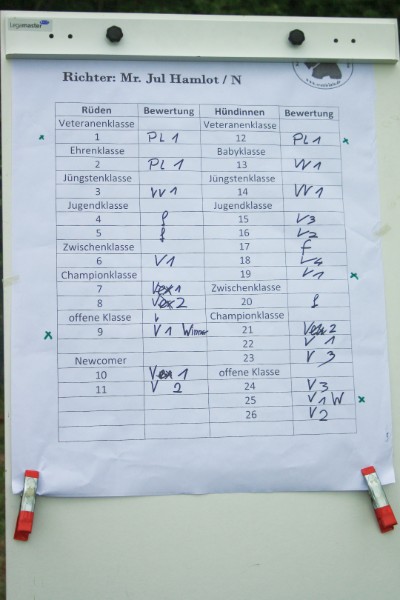 Legamaster
Richter: Mr. Jul Hamlot / N
Rüden Bewertung Hündinnen Bewertung
Veteranenklasse Veteranenklasse
1 PL 1 12 PL 1
Ehrenklasse Babyklasse
2 PL 1 13 VV 1
Jüngstenklasse Jüngstenklasse
3 VV 1 14 VV 1
Jugendklasse Jugendklasse
4 15 V3
5 16 V2
Zwischenklasse 17 F
6 V1 18 V4
Championklasse 19 V1
7 1 Zwischenklasse
8 2 20
offene Klasse Championklasse
9 V 1 Winner 21 2
22 V 1
Newcomer 23 V 3
10 1 offene Klasse
11 V 2 24 V3
25 V1 W
26 V2